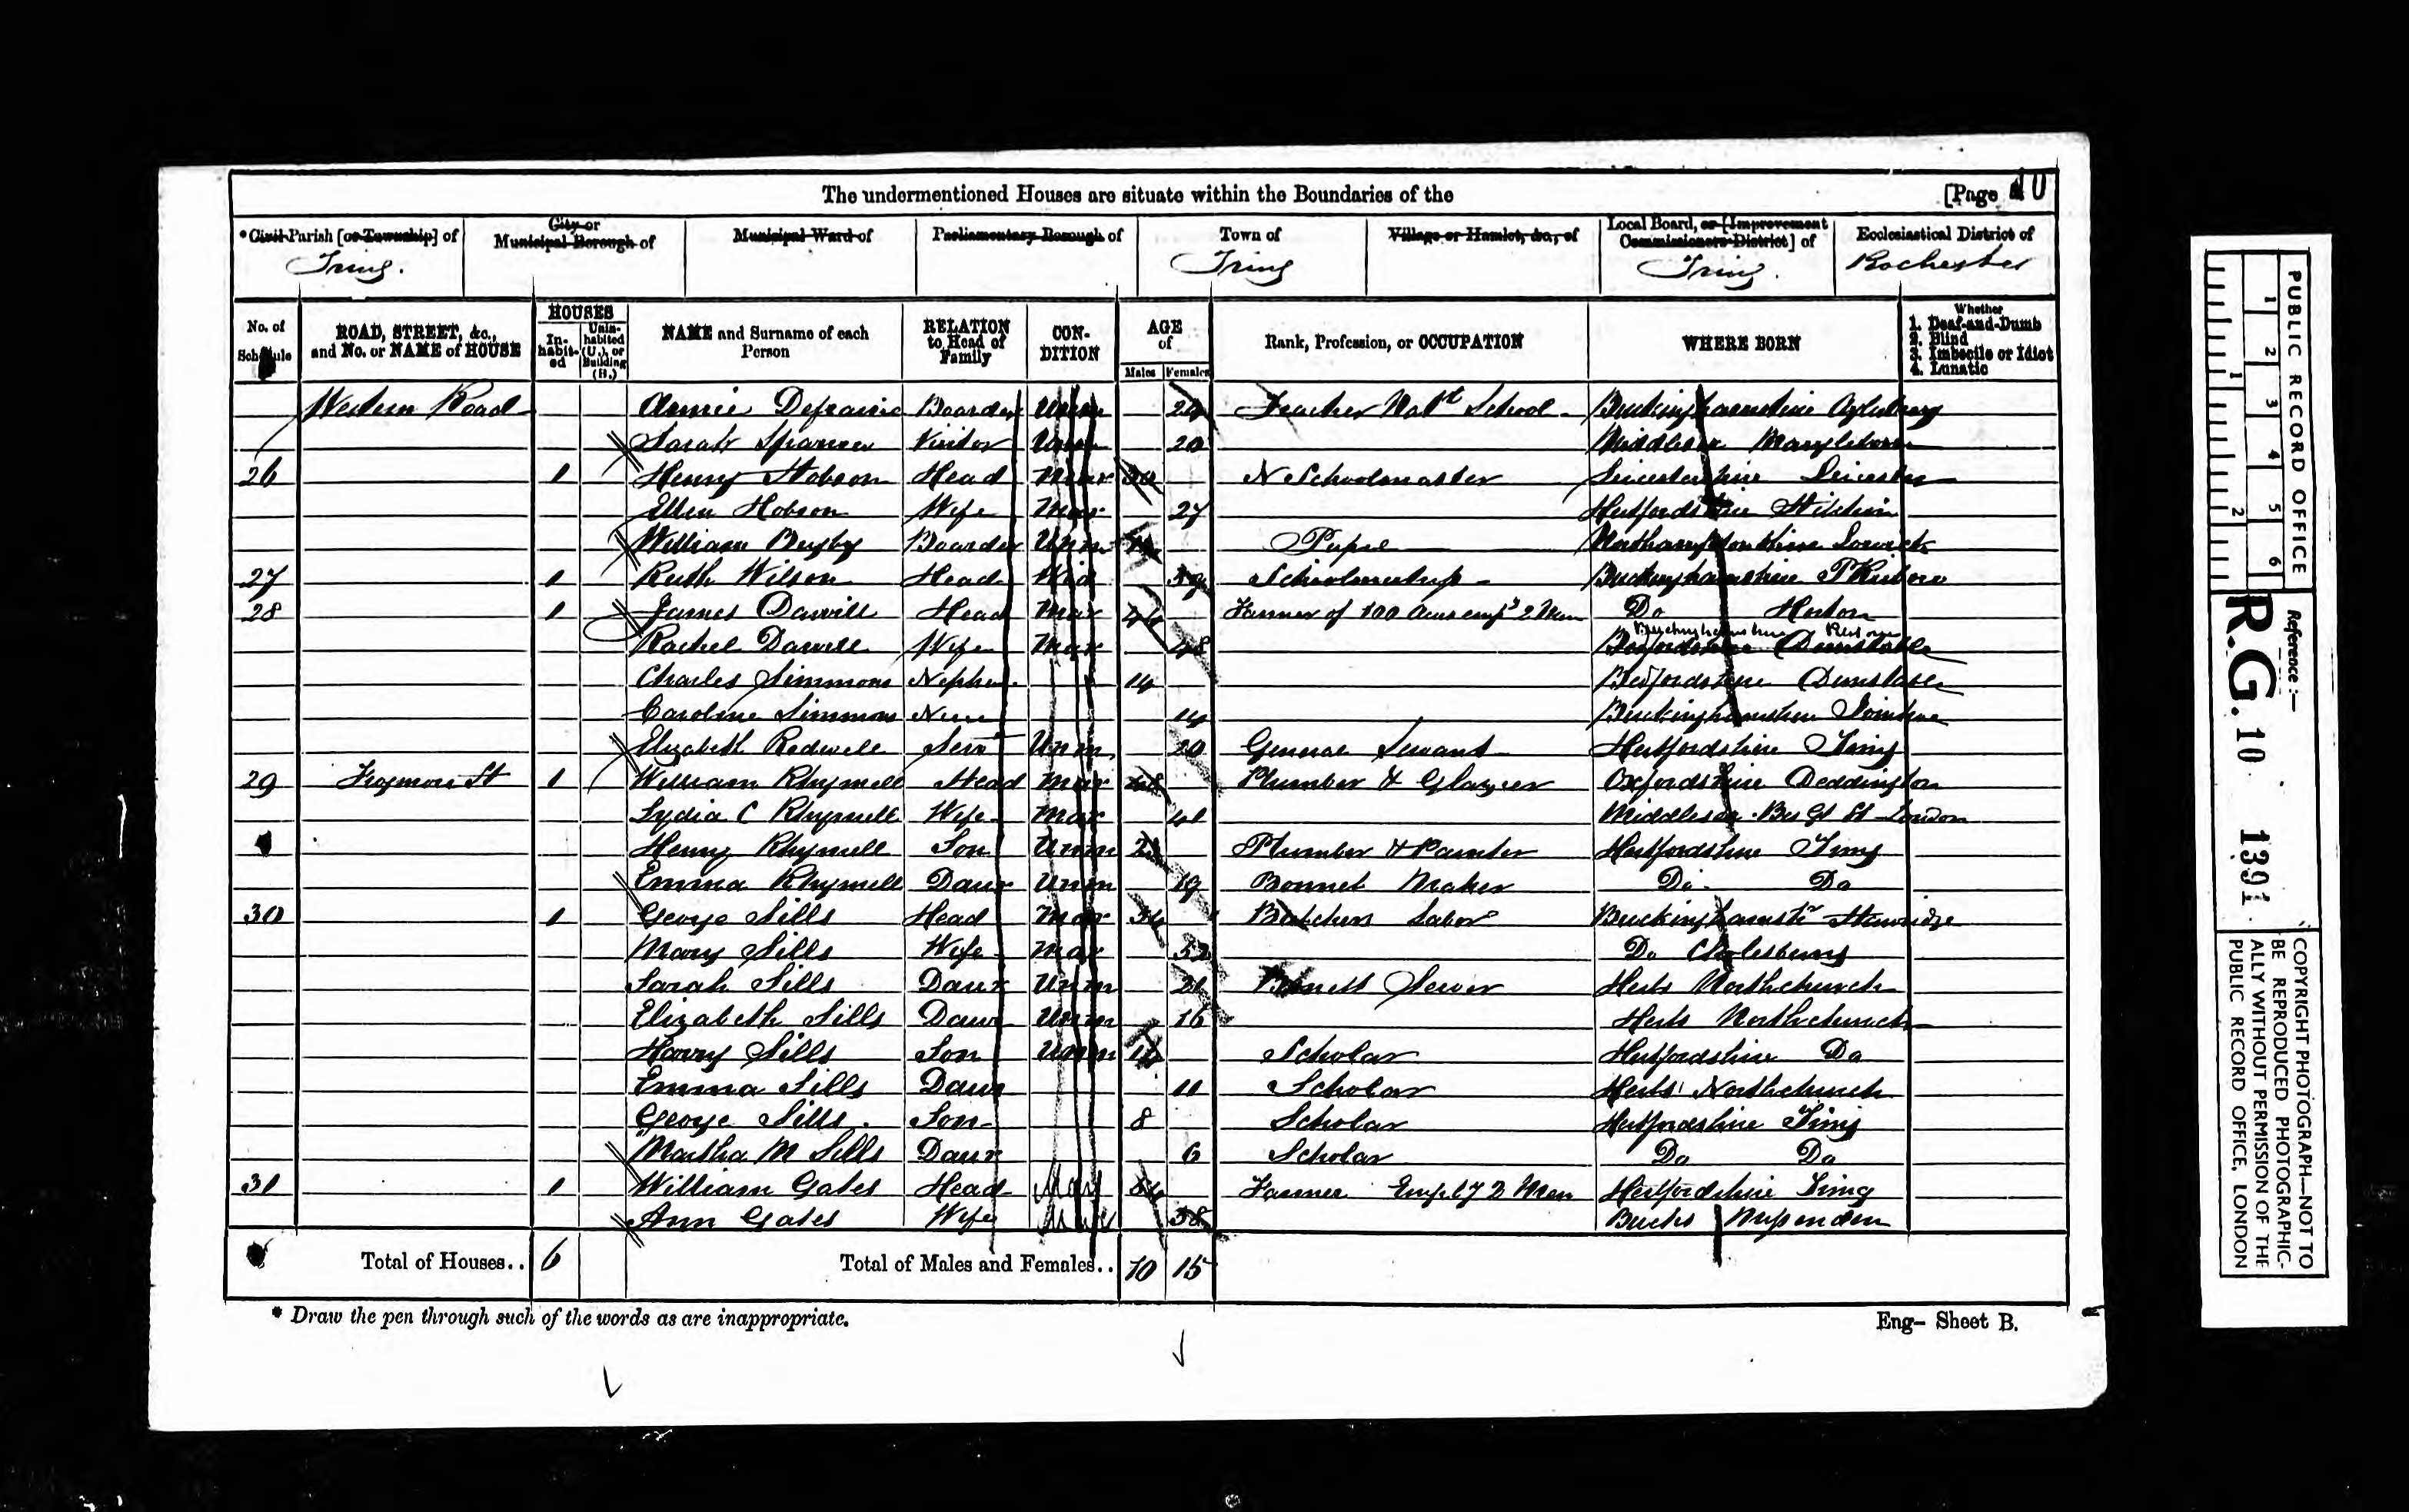 The undermentioned Houses are situate within the Boundaries of the [Page 10
*Civil Parish [or Township] of City or Municipal Borough of Municipal Ward of Parliamentary Borough of Town of Village or Hamlet, &c., of Local Board, or [Improvement Commissioners District] of Ecclesiastical District of
Tring. Tring Tring. Rochester
No. of Schedule ROAD, STREET, &c., and No. or NAME of HOUSE HOUSES Inhabited Uninhabited (U.), or Building (B.) NAME and Surname of each Person RELATION to Head of Family CONDITION AGE of Males Females Rank, Profession, or OCCUPATION WHERE BORN Whether 1. Deaf-and-Dumb 2. Blind 3. Imbecile or Idiot 4. Lunatic
Western Road Annie Defraine Boarder Unm 24 Teacher Natl School Buckinghamshire Aylesbury
Sarah Visitor Unm 20 Middlesex Marylebone
26 1 Henry Hobson Head Mar N Schoolmaster Leicestershire Leicester
Ellen Hobson Wife Mar 27 Hertfordshire Hitchin
William Boarder Unm Pupil Northamptonshire
27 1 Ruth Wilson Head Wid Schoolmistress Buckinghamshire P Risboro
28 1 James Darvill Head Mar 46 Farmer of 100 Acres emps 2 Men Do Horton
Buckinghamshire
Rachel Darvill Wife Mar 48 Bedfordshire Dunstable
Charles Simmons Nephew 14 Bedfordshire Dunstable
Caroline Simmons Niece 14 Buckinghamshire
Elizabeth Rodwell Servt Unm 20 General Servant Hertfordshire Tring
29 Frogmore St 1 William Rhymell Head Mar 48 Plumber & Glazier Oxfordshire Deddington
Lydia C Rhymell Wife Mar 41 Middlesex London
Henry Rhymell Son Unm Plumber & Painter Hertfordshire Tring
Emma Rhymell Daur Unm 19 Bonnet Maker Do Do
30 1 George Sills Head Mar Butchers Labor Buckinghamsr Hawridge
Mary Sills Wife Mar 52 Do Cholesbury
Sarah Sills Daur Unm 21 Bonnett Sewer Herts Northchurch
Elizabeth Sills Daur Unm 16 Herts Northchurch
Harry Sills Son Unm Scholar Hertfordshire Do
Emma Sills Daur 11 Scholar Herts Northchurch
George Sills. Son 8 Scholar Hertfordshire Tring
Martha M Sills Daur 6 Scholar Do Do
31 1 William Gates Head Mar Farmer Emply 2 Men Hertfordshire Tring
Ann Gates Wife Mar 58 Bucks
Total of Houses.. 6 Total of Males and Females.. 10 15
* Draw the pen through such of the words as are inappropriate. Eng- Sheet B.
PUBLIC RECORD OFFICE
1 2 3 4 5 6
1 2
Reference:-
R.G. 10 1391
COPYRIGHT PHOTOGRAPH—NOT TO
BE REPRODUCED PHOTOGRAPHIC-
ALLY WITHOUT PERMISSION OF THE
PUBLIC RECORD OFFICE, LONDON